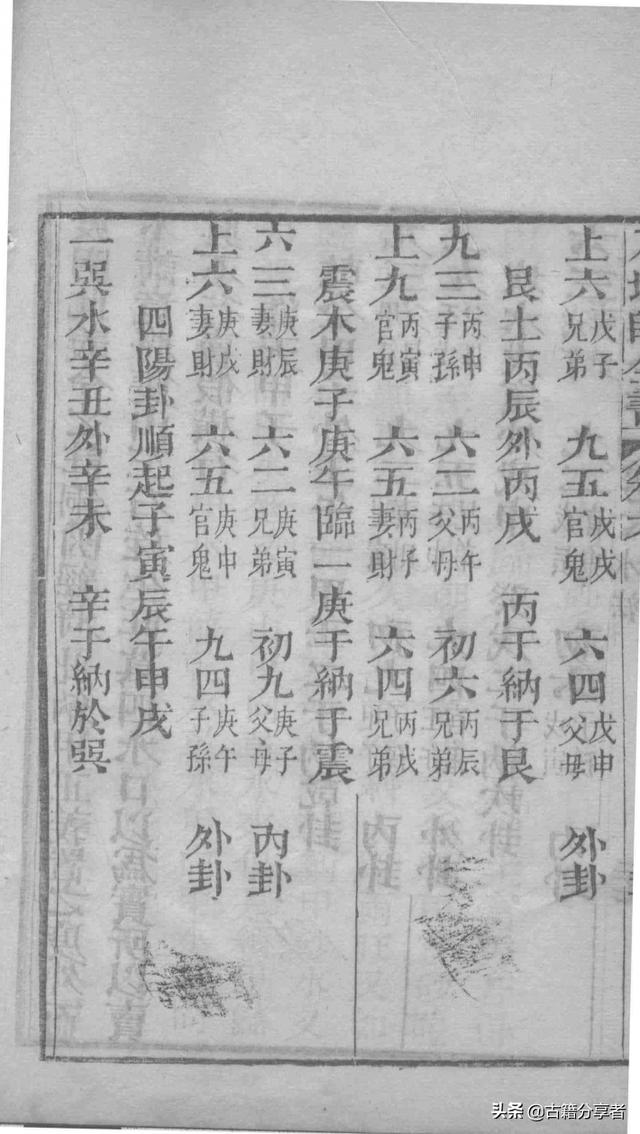 上六戊子兄弟 九五戊戌官鬼 六四戊申父母 外卦
艮土丙辰外丙戌 丙干納于艮
九三丙申子孫 六二丙午父母 初六丙辰兄弟
上九丙寅官鬼 六五丙子妻財 六四丙戌兄弟
震木庚子庚午臨一庚干納于震
六三庚辰妻財 六二庚寅兄弟 初九庚子父母 內卦
上六庚戌妻財 六五庚申官鬼 九四庚午子孫 外卦
四陽卦順起子寅辰午申戌
一巽水辛丑外辛未 辛干納於巽
头条 @古籍分享者